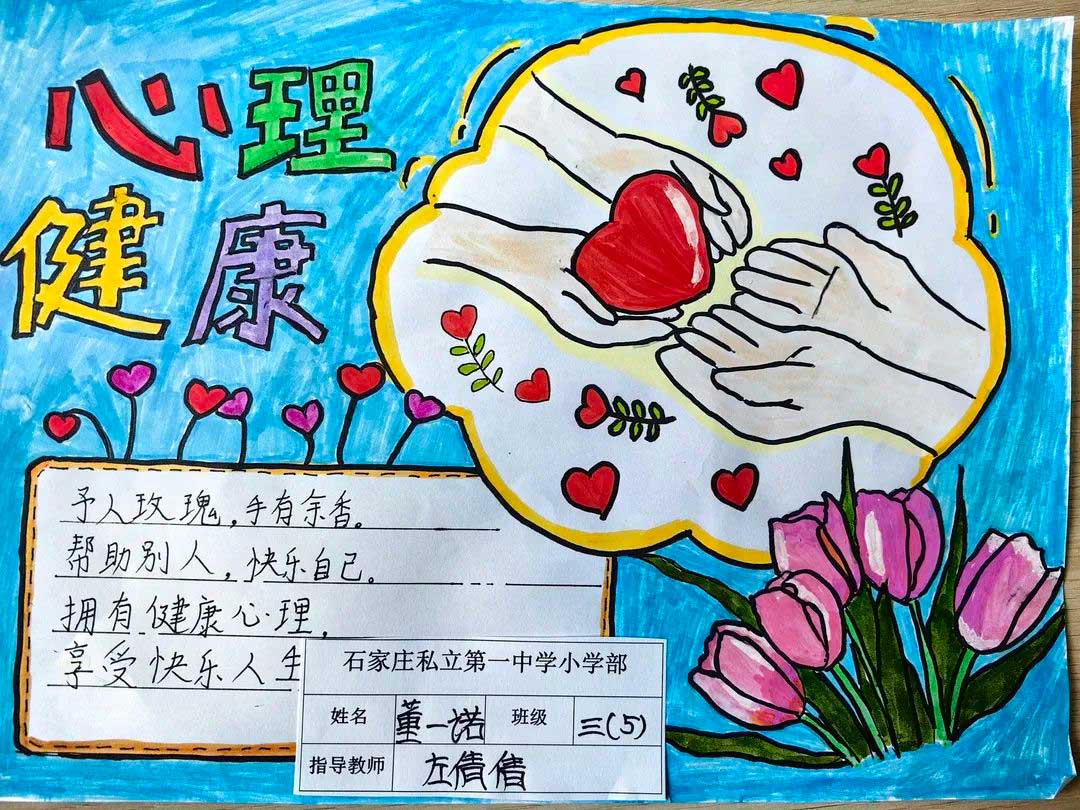 心理
健康
予人玫瑰,手有余香。
帮助别人,快乐自己。
拥有健康心理,
享受快乐人生
石家庄私立第一中学小学部
姓名 董一诺 班级 三(5)
指导教师 左倩倩